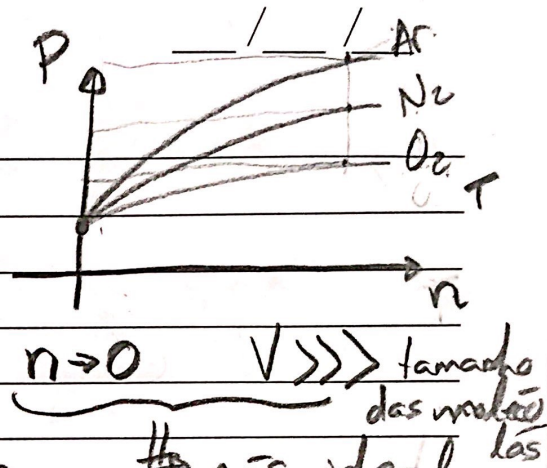 __/__/ Ar
P
N₂
O₂
T
n
n→0 V >>> tamanho
das moléculas
ideal